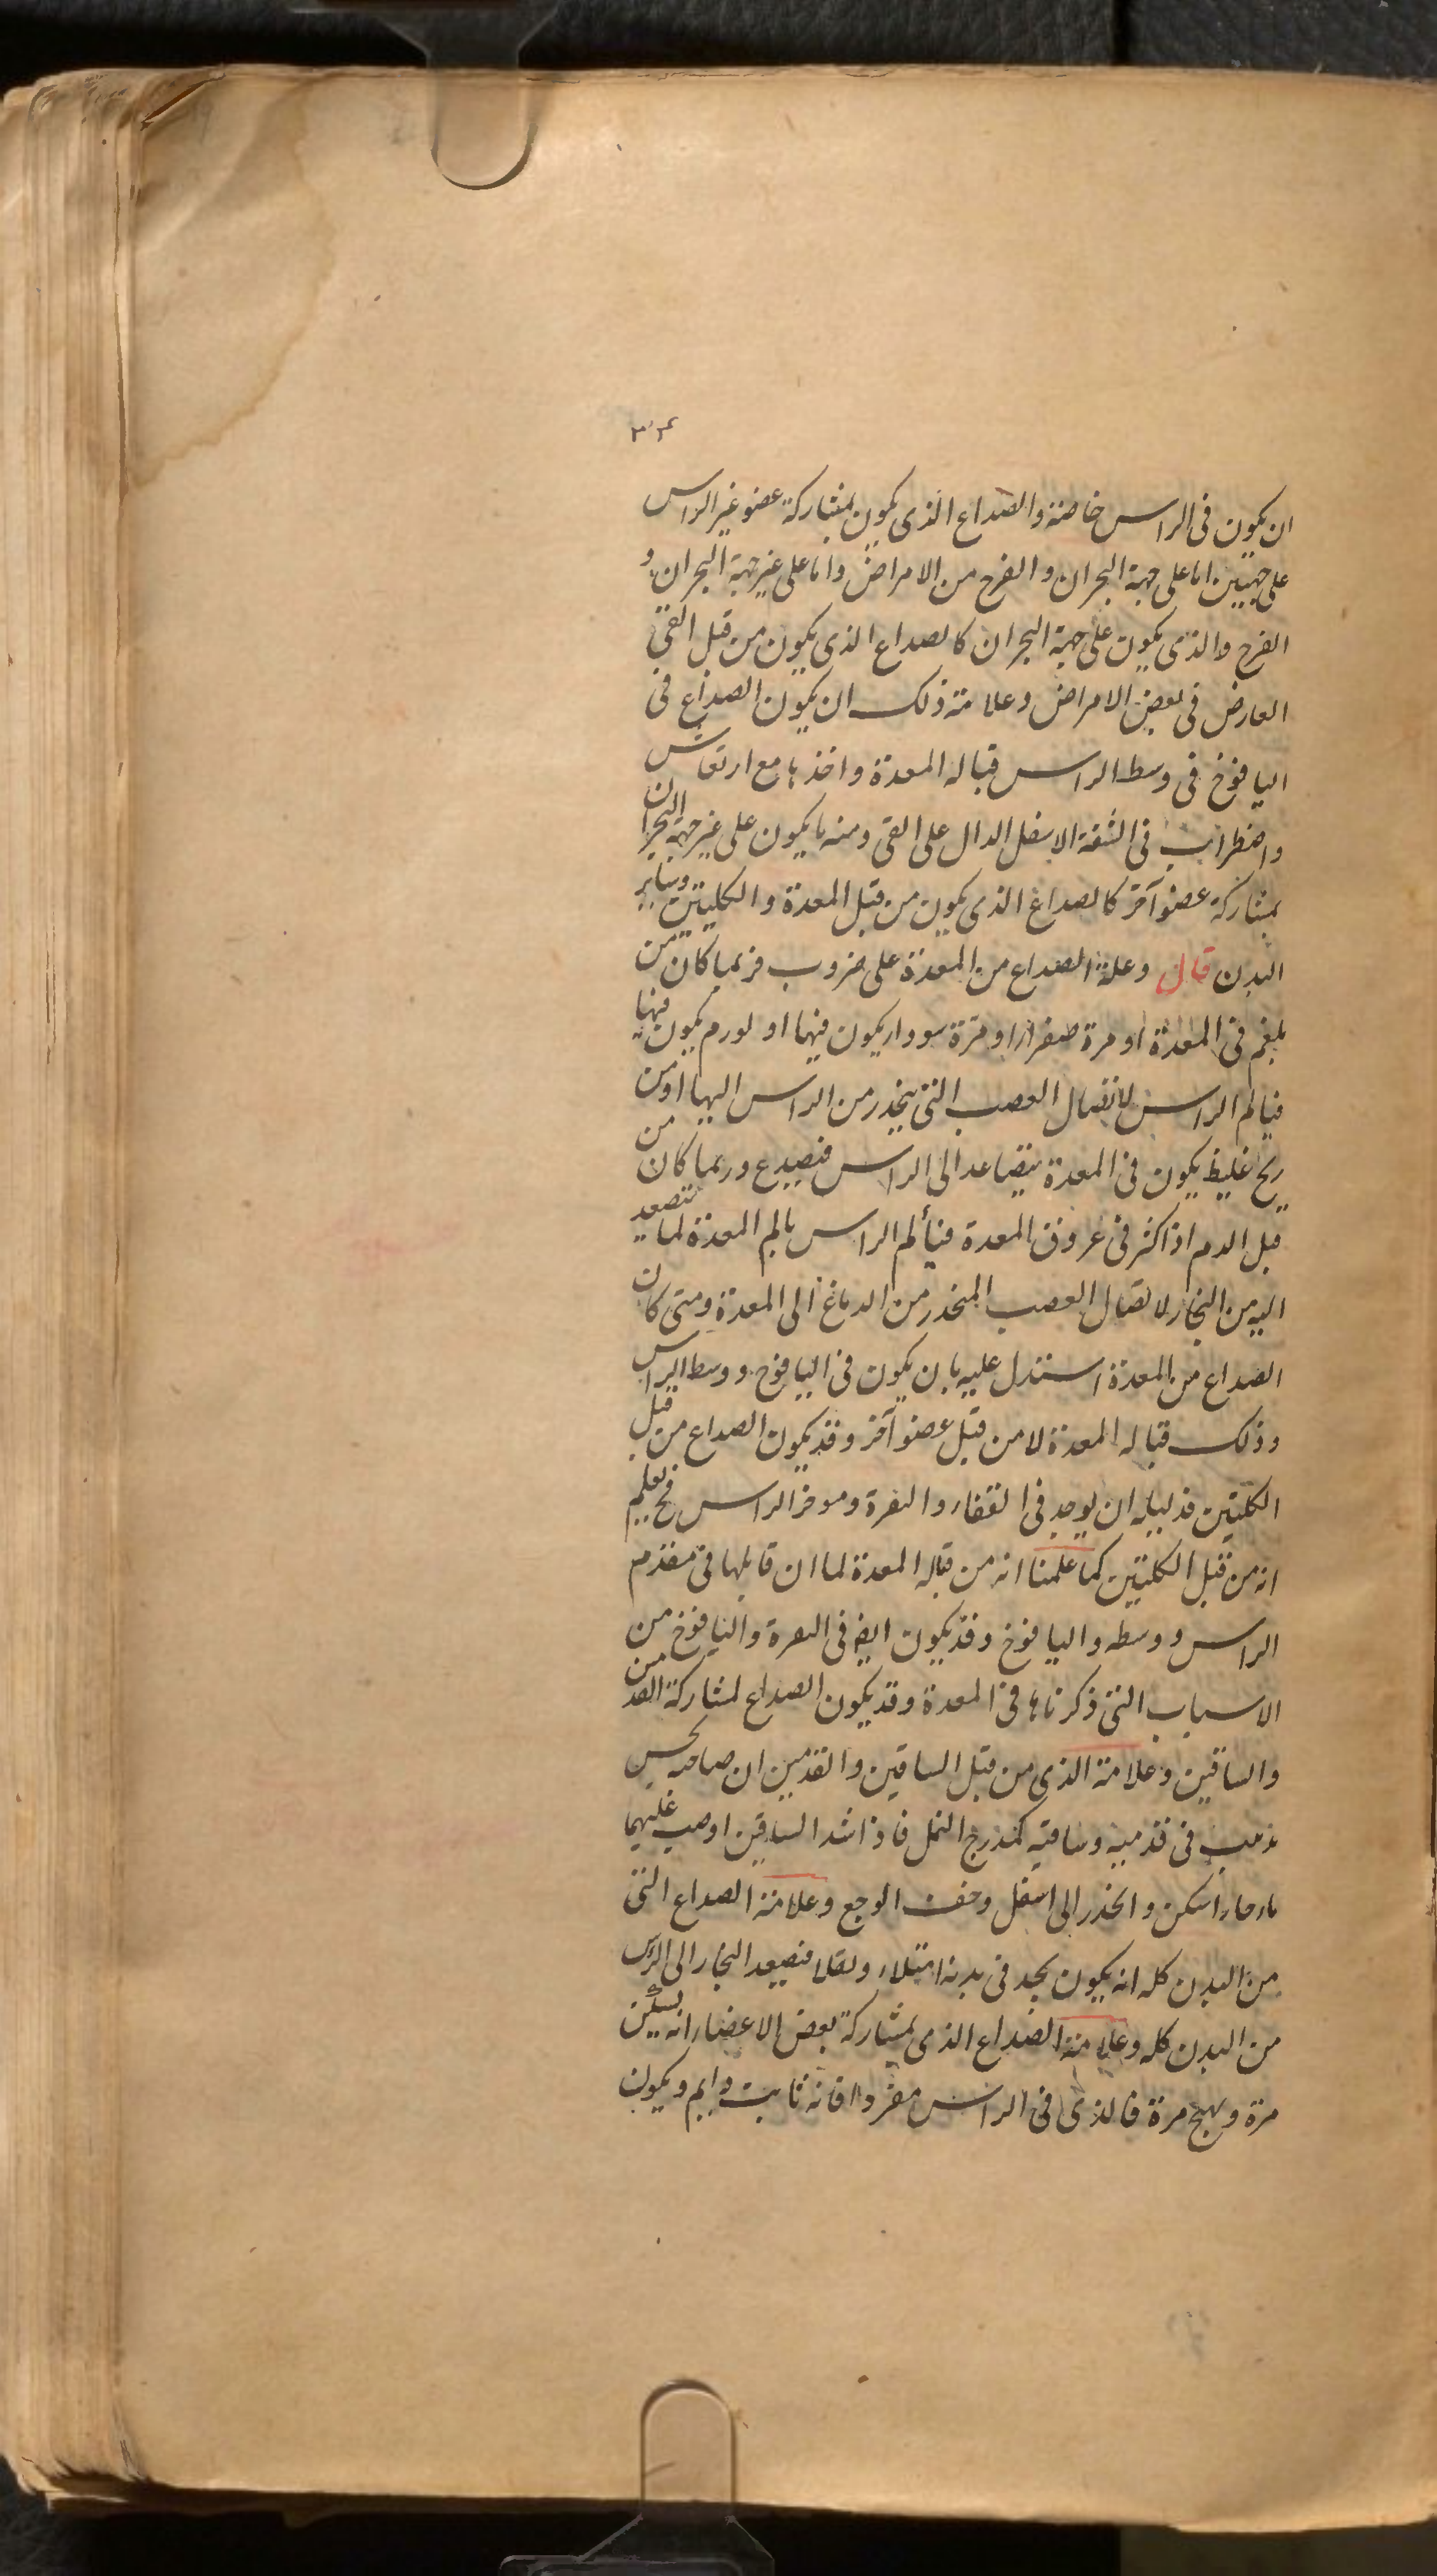 ان يكون فى الراس خاصة والصداع الذى يكون بمشاركة عضو غير الراس
على جهتين اما على جهة البحران و الفرح من الامراض واما على غير جهة البحران و
الفرح والذى يكون على جهة البحران كالصداع الذى يكون من قبل القى
العارض فى بعض الامراض وعلامة ذلك ان يكون الصداع فى
اليافوخ فى وسط الراس قباله المعدة واخذها مع ارتعاش
واضطراب فى الشفة الاسفل الدال على القى ومنه ما يكون على غير جهة البحران
بمشاركة عضو آخر كالصداع الذى يكون من قبل المعدة والكليتين وساير
البدن قال وعلة الصداع من المعدة على ضروب فربما كان من
بلغم فى المعدة او مرة صفرا او مرة سودا يكون فيها او لورم يكون فيها
فيالم الراس لاتصال العصب التى ينحدر من الراس اليها او من
ريح غليظ يكون فى المعدة يتصاعد الى الراس فيصدع وربما كان من
قبل الدم اذا كثر فى عروق المعدة فيألم الراس بالم المعدة لما يتصعد
اليه من البخار لاتصال العصب المنحدر من الدماغ الى المعدة ومتى كان
الصداع من المعدة استدل عليه بان يكون فى اليافوخ ووسط الراس
وذلك قباله المعدة لا من قبل عضو آخر وقد يكون الصداع من قبل
الكليتين فدليله ان يوجد فى القفار والنقرة وموخر الراس فح يعلم
انه من قبل الكليتين كما علمنا انه من قباله المعدة لما ان قابلها فى مقدم
الراس ووسطه واليافوخ وقد يكون ايض فى النقرة واليافوخ من
الاسباب التى ذكرناها فى المعدة وقد يكون الصداع لمشاركة القدمين
والساقين وعلامة الذى من قبل الساقين والقدمين ان صاحبه يحس
بدبيب فى قدميه وساقيه كمدرج النمل فاذا شد الساقين او صب عليهما
ماء حار اسكن وانحدر الى اسفل وخف الوجع وعلامة الصداع التى
من البدن كله انه يكون يجد فى بدنه امتلاء وثقلا فيصعد البخار الى الراس
من البدن كله وعلامة الصداع الذى بمشاركة بعض الاعضاء انه يسكن
مرة ويهيج مرة فالذى فى الراس مفردا فانه ثابت دايم ويكون